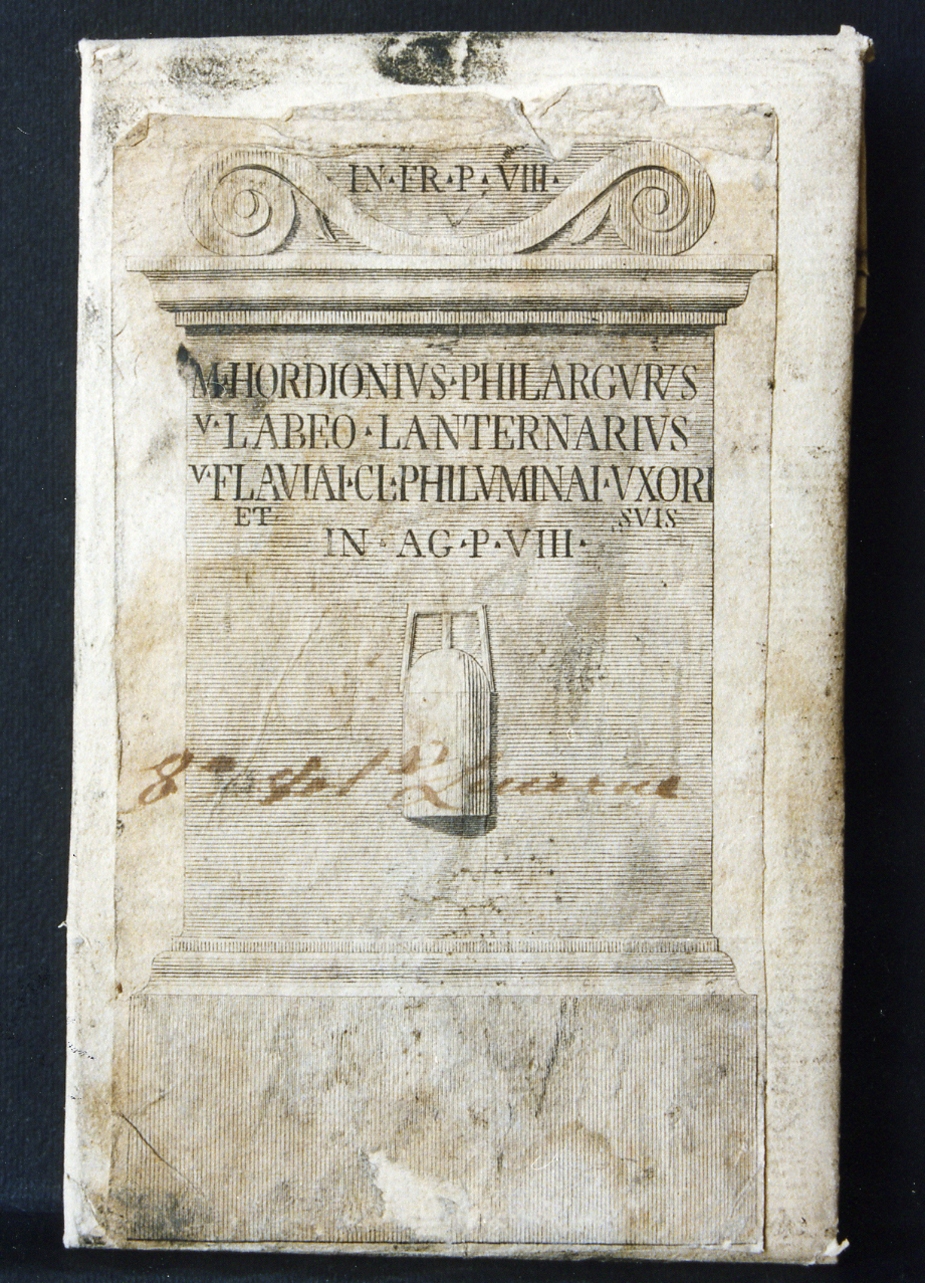 IN·FR·P·VIII·
M·HORDIONIVS·PHILARGVRVS
V·LABEO·LANTERNARIVS
V·FLAVIAI·CL·PHILVMINAI·VXORI
ET SVIS
IN·AG·P·VIII·